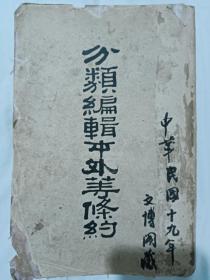 分類編輯中外華條約
中華民國十九年
文博國藏